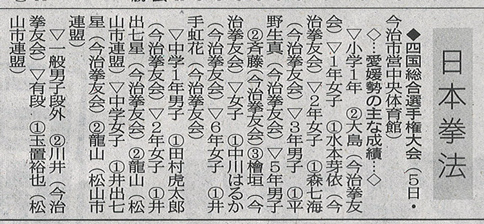 日本拳法
◆四国総合選手権大会（5日・
今治市営中央体育館）
◇…愛媛勢の主な成績…◇
▽小学1年　②大島（今治拳友
会）▽1年女子　①水本芽依（今
治拳友会）▽2年女子　①森七海
（今治拳友会）▽3年男子　①平
野生真（今治拳友会）▽5年男子
②斉藤（今治拳友会）③檜垣（今
治拳友会）▽女子　①中川はるか
（今治拳友会）▽6年女子　①井
手虹花（今治拳友会）
▽中学1年男子　①田村虎太郎
（今治拳友会）▽2年女子　①井
出七星（今治拳友会）②龍山（松
山市連盟）▽中学女子　①井出七
星（今治拳友会）②龍山（松山市
連盟）
▽一般男子段外　②川井（今治
拳友会）▽有段　①玉置裕也（松
山市連盟）